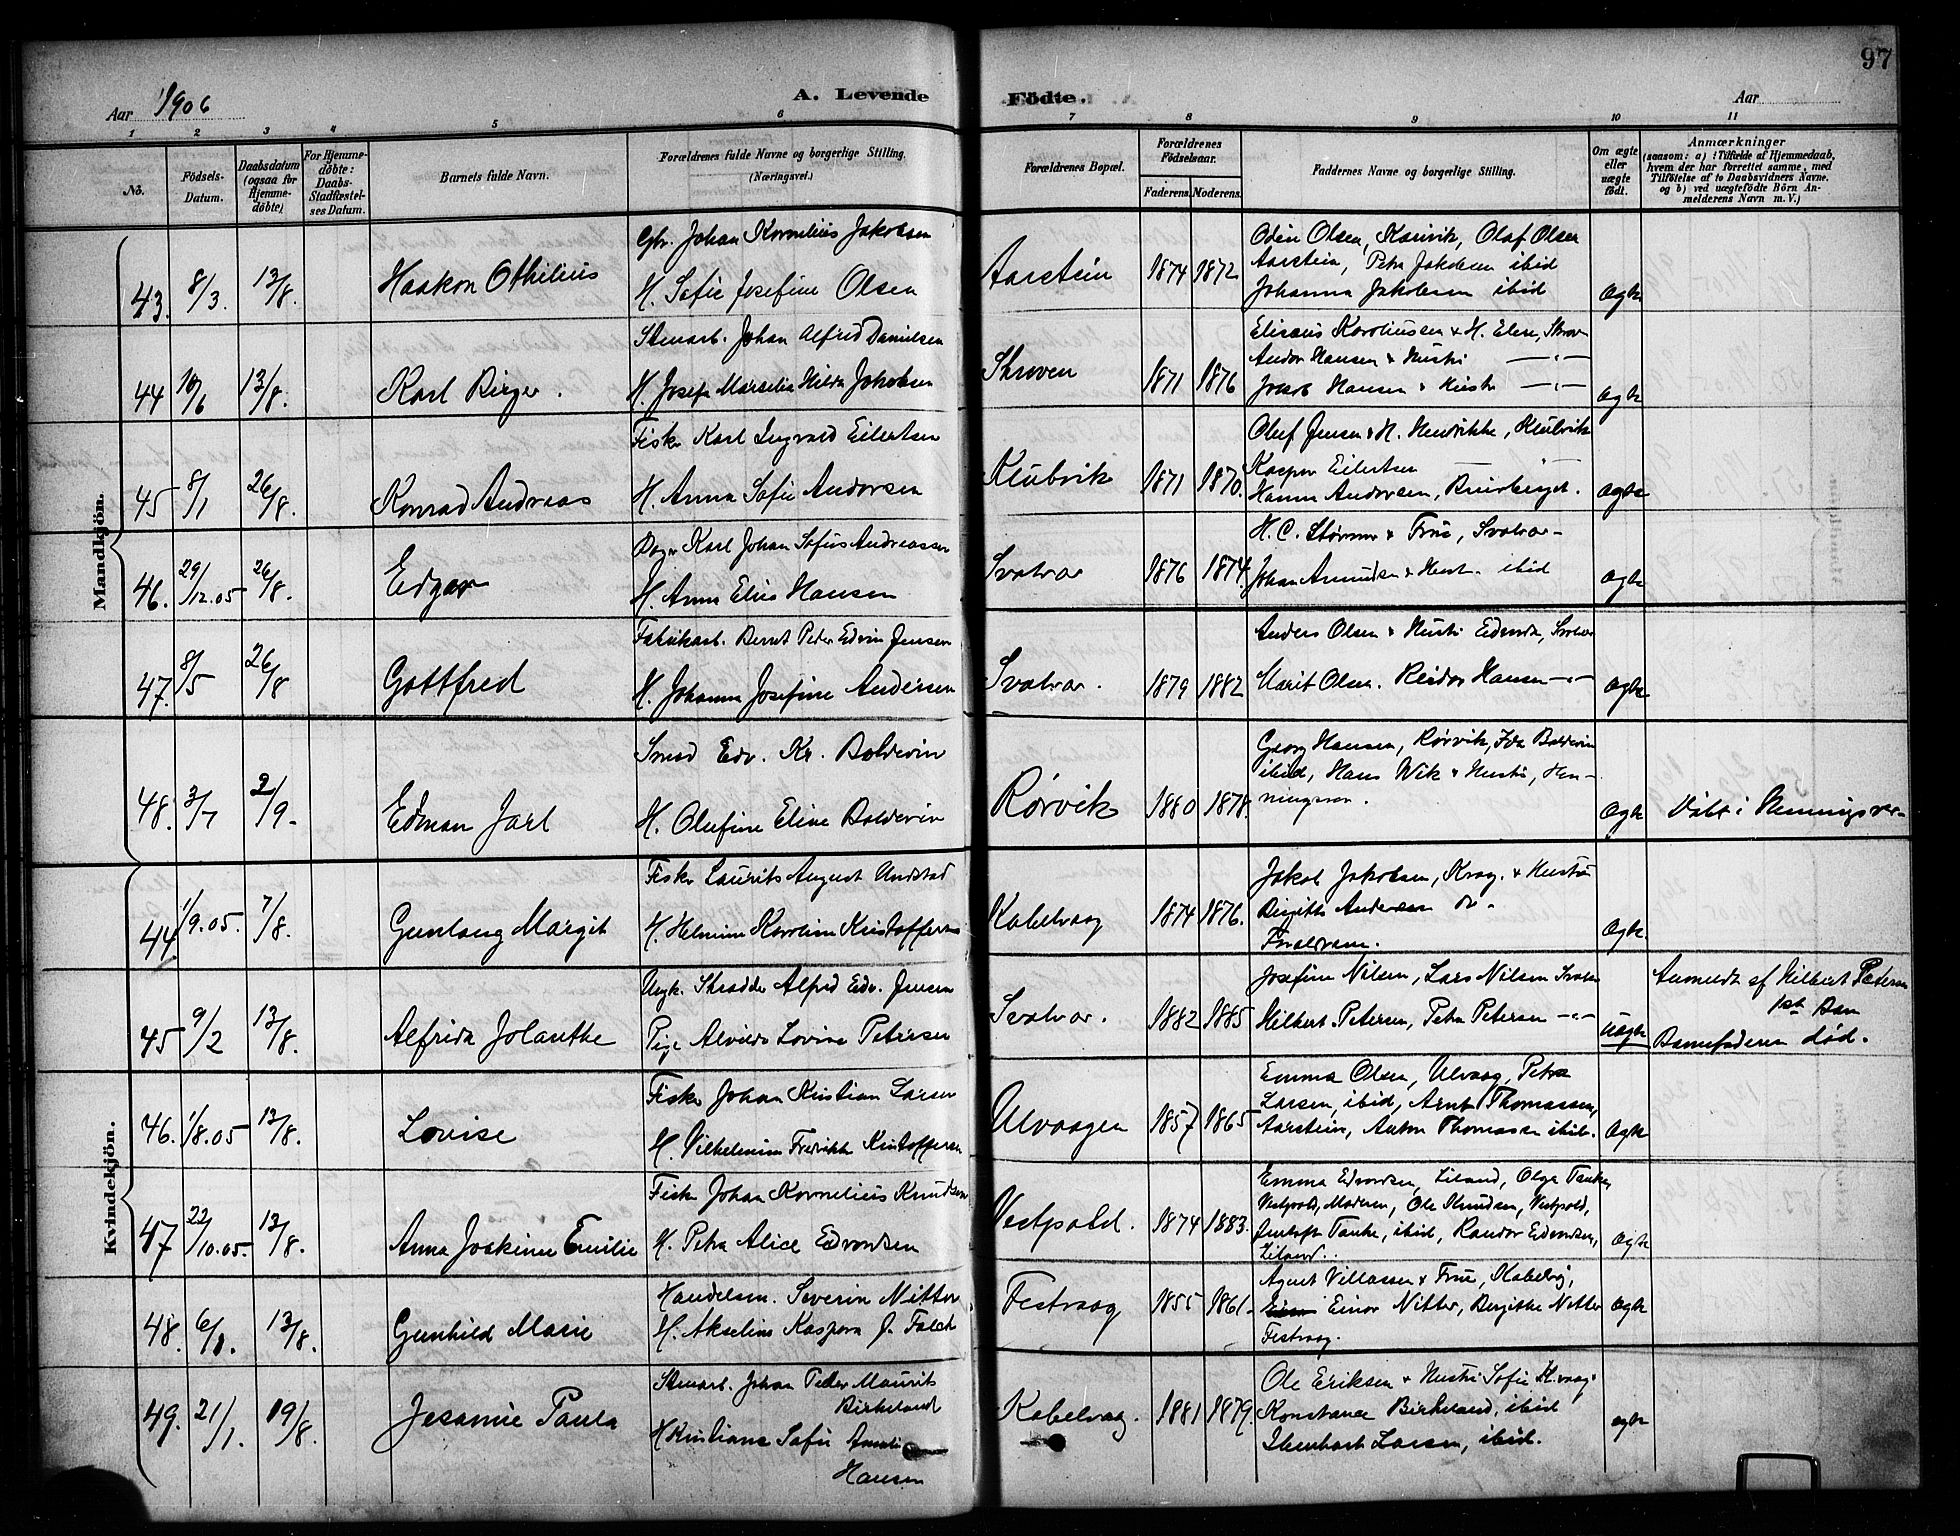 97
Aar 1906
A. Levende Födte.
Aar
1 2 3 4 5 6 7 8 9 10 11
No.
Födsels-Datum.
Daabsdatum (ogsaa for Hjemme-döbte)
For Hjemme-döbte: Daabs-Stadfæstel-ses Datum.
Barnets fulde Navn.
Forældrenes fulde Navne og borgerlige Stilling. (Næringsvei.)
Forældrenes Bopæl.
Forældrenes Födselsaar.
Faderens. Moderens.
Faddernes Navne og borgerlige Stilling.
Om ægte eller uægte födt.
Anmærkninger
(saasom: a) i Tilfælde af Hjemmedaab, hvem der har forrettet samme, med Tilföielse af to Daabsvidners Navne, og b) ved uægtefödte Börn An-melderens Navn m. V.)
Mandkjön.
43. 8/3. 13/8. Haakon Othilius
Gbr. Johan Kornelius Jakobsen
H. Sofie Josefine Olsen
Aarstein 1874 1872
Odin Olsen, Karivik, Olaf Olsen
Aarstein, Petra Jakobsen ibid
Johanna Jakobsen ibid
Ægte
44 10/6 13/8. Karl Birger.
Stenarb. Johan Alfred Danielsen
H. Josefa Marselia Hilda Jakobsen
Skroven 1871 1876
Elisæus Karoliussen & H. Elen, Skrov
Andor Hansen & Hustru —"—
Jakob Hansen & Hustr —"—
Ægte
45 8/1 26/8. Konrad Andreas
Fisker Karl Ingvald Eilertsen
H. Anna Sofie Andorsen
Klubvik 1871 1870.
Oluf Jensen & H. Henrikke, Klubvik
Kasper Eilertsen —
Hanna Andorsen,
Ægte
46. 29/12.05 26/8. Edgar
Bager Karl Johan Sofus Andreassen
H. Anna Elise Hansen
Svolvær 1876 1874.
H. C. Størmer & Frue, Svolvær
Johan Amundsen & Hust. ibid
Ægte
47. 8/5 26/8 Gottfred
Fabrikarb. Bernt Peder Edvin Jensen
H. Johanna Josefine Andersen
Svolvær. 1879 1882
Anders Olsen & Hustru Svolvær
Marit Olsen. Reidar Hansen —"—
Ægte
48. 3/7 2/9. Edman Jarl
Smed Edv. Kr. Boldevin
H. Olufine Eline Boldevin
Rørvik 1880 1878.
Georg Hansen, Rørvik, Ida Boldevin
ibid, Hans Wik & Hustru, Hen-
ningsvær.
Ægte Døbt i Henningsvær-
Kvindekjön.
44 1/9.05. 7/8. Gunlaug Margit
Fisker Laurits August Undstad
H. Helmine Karoline Kristoffersen
Kabelvaag 1874 1876.
Jakob Jakobsen, Kvag. & Hustru
Birgitte Andersen do.
Ægte.
45 9/2 13/8. Alfrida Jolanthe
Ungk. Skrædder Alfred Edv. Jensen
Pige Alvilda Lovise Petersen
Svolvær. 1882 1885
Josefine Nilsen, Lars Nilsen Svolvær
Hilbert Petersen, Petra Petersen —"—
Uægte
Anmeldt af Hilbert Petersen
1ste Barn
Barnefaderen død.
46. 1/8.05 13/8. Lovise
Fisker Johan Kristian Larsen
H. Vilhelmine Fredrikke Kristoffersen
Ulvaagen 1857 1865
Emma Olsen, Ulvaag, Petra
Larsen, ibid, Arnt Thomassen,
Aarstein, Anton Thomassen ibid.
Ægte
47 22/10.05. 13/8. Anna Joakime Emilie
Fisker Johan Kornelius Knudsen
H. Petra Alice Edvardsen
Vestpold. 1874 1883.
Emma Edvardsen, Liland, Olga Tanke,
Vestpold, Moderen, Ole Knudsen, Vestpold,
Tanke, ibid, Randor Edvardsen,
Liland.
Ægte
48. 6/8. 13/8. Gunhild Marie
Handelsm. Severin Nitter
H. Akseline Kaspara J. Falch
Festvaag 1855 1861.
Agent Villassen & Frue, Kabelvg,
Einar Nitter, Birgithe Nitter
Festvaag.
Ægte
49. 21/1. 19/8. Jesamie Paula
Stenarb. Johan Peder Maurits
Birkeland
H Kristiane Sofie Amalie
Hansen
Kabelvag. 1881 1879.
Ole Eriksen & Hustru Sofie Kvaag.
Konstance Birkeland, ibid
Larsen, ibid.
Ægte